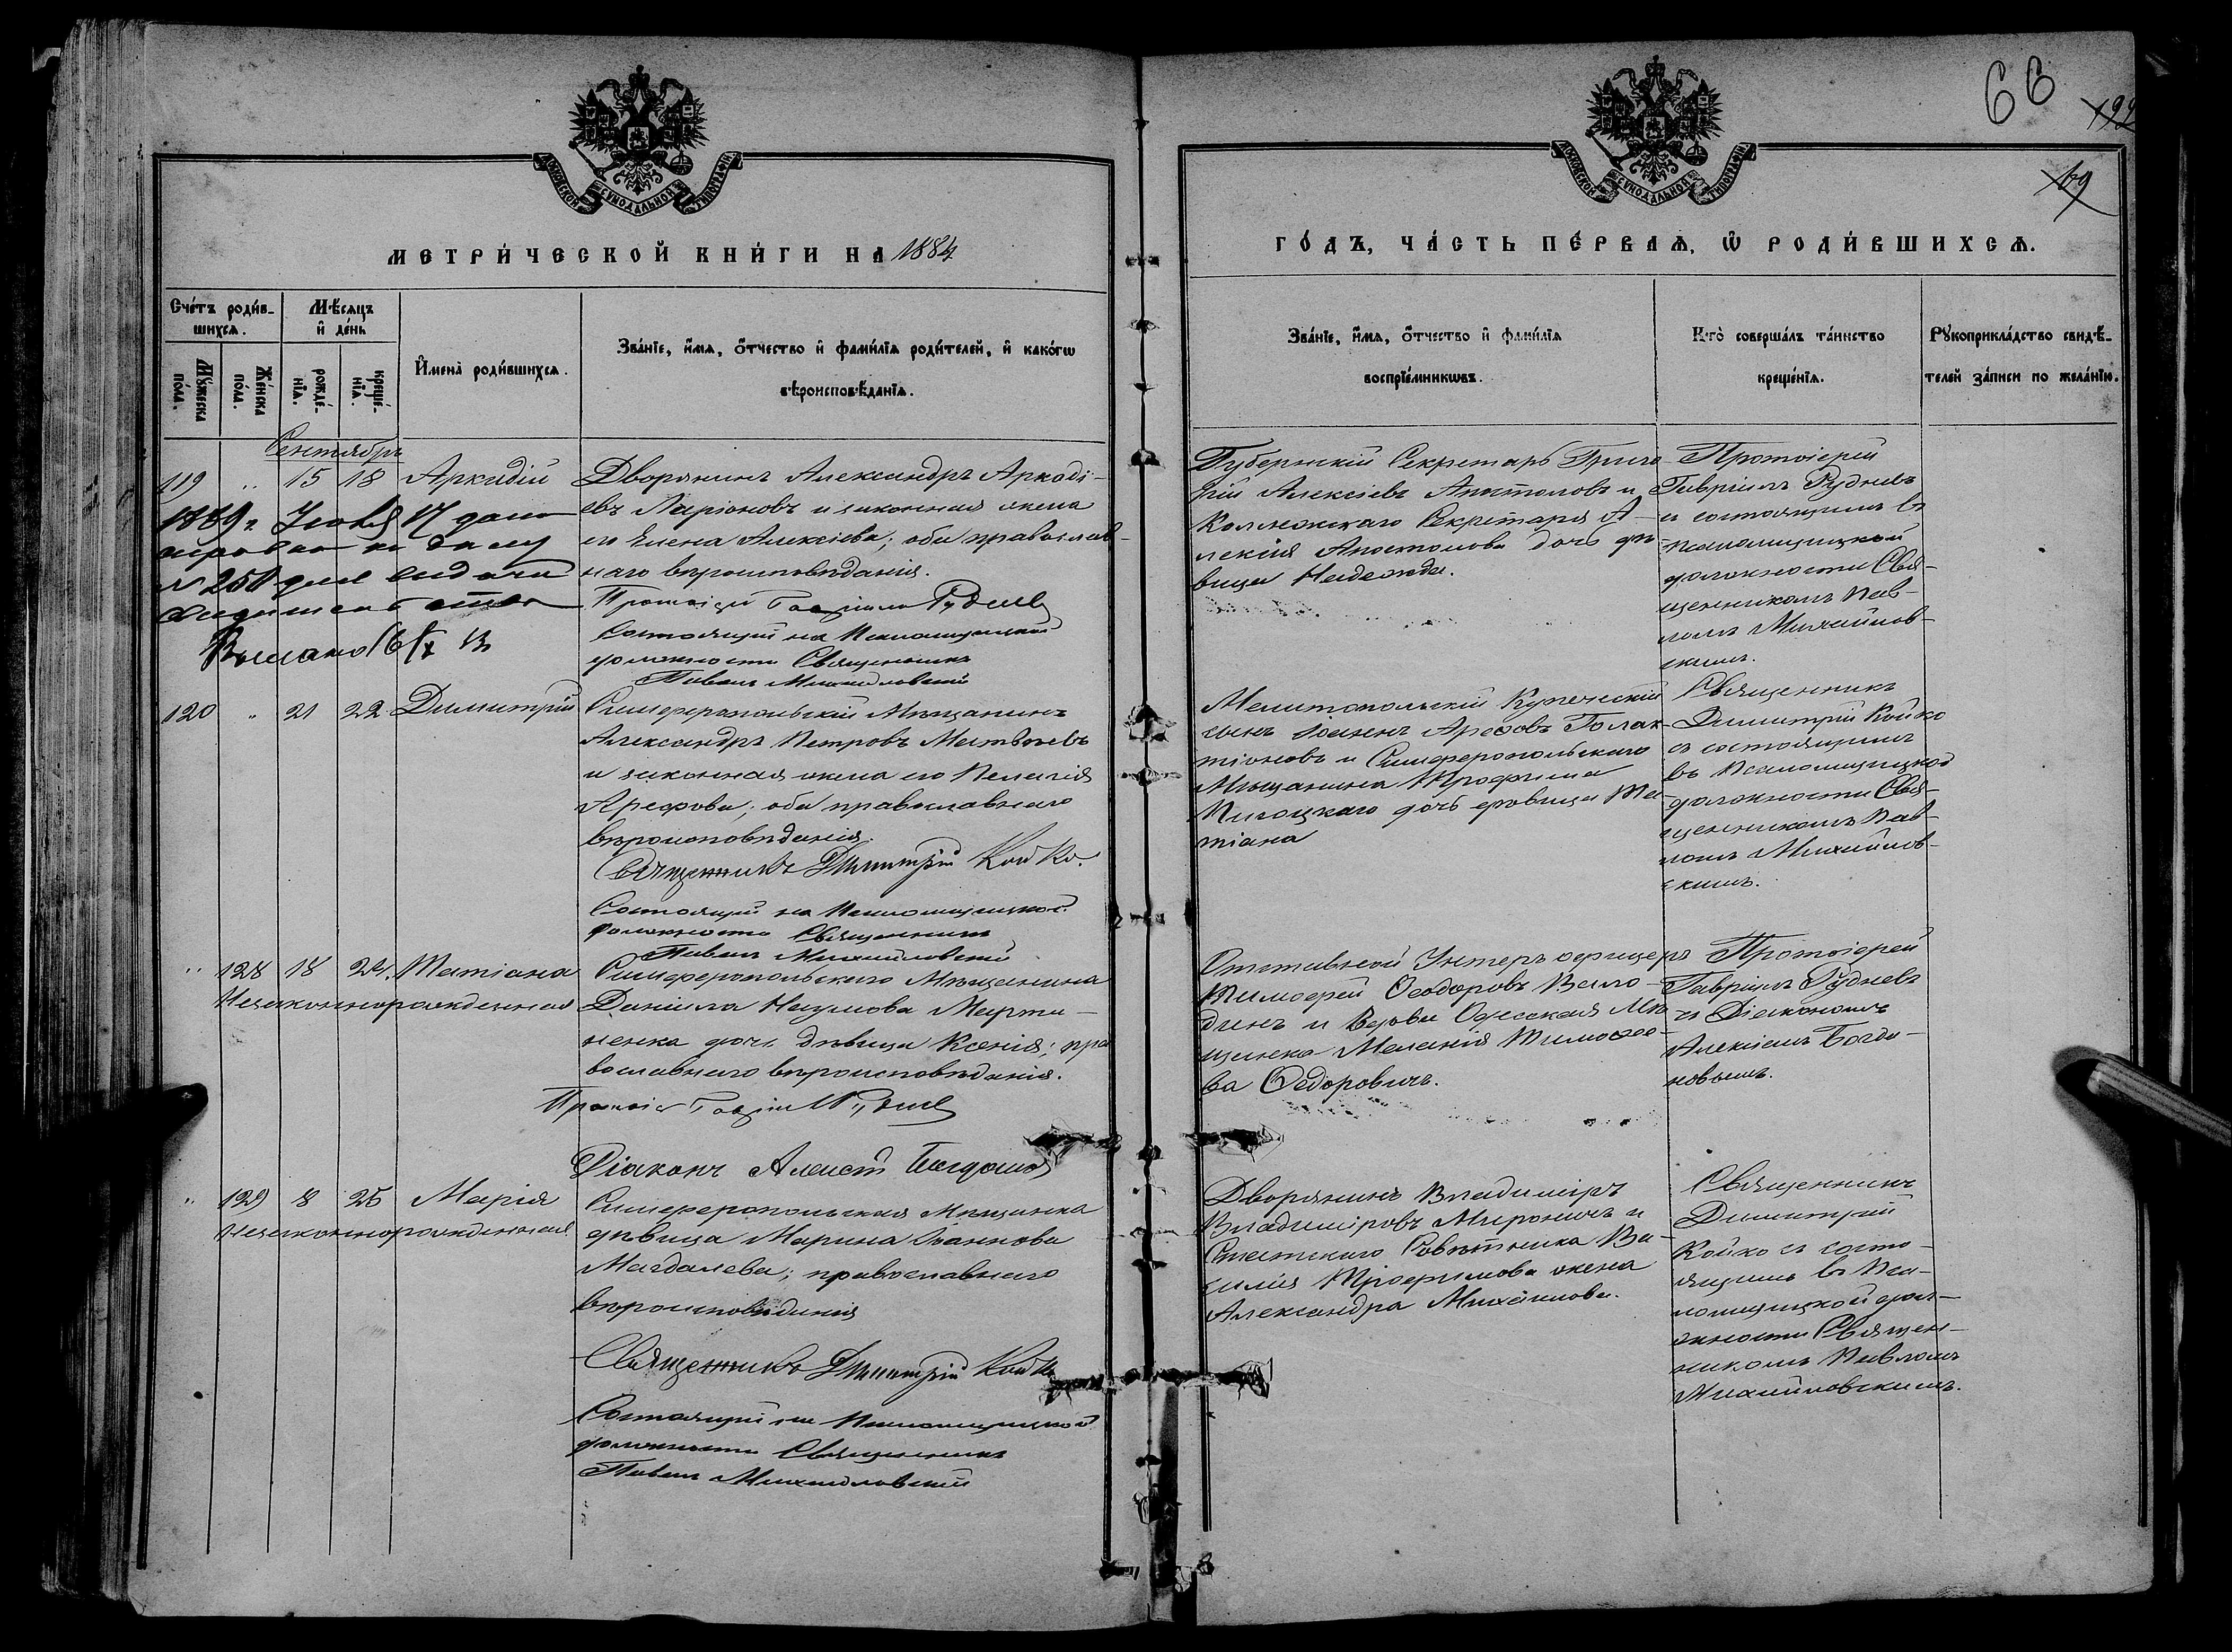 МОСКОВСКОЙ СѴНОДАЛЬНОЙ ТИПОГРАФІИ
МЕТРИ́ЧЕСКОЙ КНИ́ГИ НА 1884
Сче́тъ роди́в-
шихся.
Мѣ́сяцъ
и҆ де́нь
Мꙋ́жеска
по́ла.
Же́нска
по́ла.
рожде́-
нїѧ.
креще́-
нїѧ.
И҆мена̀ роди́вшихсѧ.
Зва́нїе, и҆́мѧ, ѻ҆́тчество и҆ фами́лїѧ роди́телей, и҆ како́гѡ
вѣроисповѣ́данїѧ.
Сентябрь
119 „ 15 18 Аркадій
Дворянинъ Александръ Аркаді-
евъ Ларіоновъ и законная жена
его Елена Алексіева; оба православ-
наго вѣроисповѣданія.
1889 г.
№ 250
Протоіерей Гавріилъ Рудневъ
Состоящій на Псаломщицкой
должности Священникъ
Павелъ Михайловскій
120 „ 21 22 Димитрій
Симферопольскій Мѣщанинъ
Александръ Петровъ Матвѣевъ
и законная жена его Пелагія
Арефова; оба православнаго
вѣроисповѣданія.
Священникъ Димитрій Койко.
Состоящій на Псаломщицкой
должности Священникъ
Павелъ Михайловскій
„ 128 18 24 Татіана
Незаконнорожденная
Симферопольскаго Мѣщанина
Даніила Наумова Марти-
ненка дочь дѣвица Ксенія; пра
вославнаго вѣроисповѣданія.
Протоіер Гавріилъ Рудневъ
Діаконъ Алексій Богдановъ
„ 129 8 25 Марія
Незаконнорожденная
Симферопольская Мѣщанка
дѣвица Марина Іоаннова
Магдалева; православнаго
вѣроисповѣданія
Священникъ Димитрій Койко
Состоящій на Псаломщицкой
должности Священникъ
Павелъ Михайловскій
66
199
69
МОСКОВСКОЙ СѴНОДАЛЬНОЙ ТИПОГРАФІИ
ГО́ДЪ, ЧА́СТЬ ПЕ́РВАѦ, Ѡ҆ РОДИ́ВШИХСѦ.
Зва́нїе, и҆́мѧ, ѻ҆́тчество и҆ фами́лїѧ
воспрїе́мникѡвъ.
Кто̀ соверша́лъ та́инство
креще́нїѧ.
Рꙋкоприкла́дство свидѣ́-
телей за́писи по жела́нїю.
Губернскій Секретарь Григо-
рій Алексіевъ Апостоловъ и
Коллежскаго Секретаря А-
лексія Апостолова дочь дѣ-
вица Надежда.
Протоіерей
Гавріилъ Рудневъ
съ состоящимъ въ
псаломщицкой
должности Свя-
щенникомъ Пав-
ломъ Михайлов-
скимъ.
Мелитопольскій Купеческій
сынъ Іоаннъ Арефовъ Галак-
тіоновъ и Симферопольскаго
Мѣщанина Трофима
дочь дѣвица Та-
тіана
Священникъ
Димитрій Койко
съ состоящимъ
въ Псаломщицкой
должности Свя-
щенникомъ Пав-
ломъ Михайлов-
скимъ.
Отставной Унтеръ офицеръ
Тимофей Ѳеодоровъ Вало-
динъ и вдова Одесская Мѣ-
щанка Меланія Тимофее-
ва Ѳедоровичъ.
Протоіерей
Гавріилъ Рудневъ
съ Діакономъ
Алексіемъ Богда-
новымъ.
Дворянинъ Владиміръ
Владиміровъ Мироничъ и
Статскаго Совѣтника Ва-
силія Трофимова жена
Александра Михайлова.
Священникъ
Димитрій
Койко съ состо-
ящимъ въ Пса-
ломщицкой дол-
жности Священ-
никомъ Павломъ
Михайловскимъ.